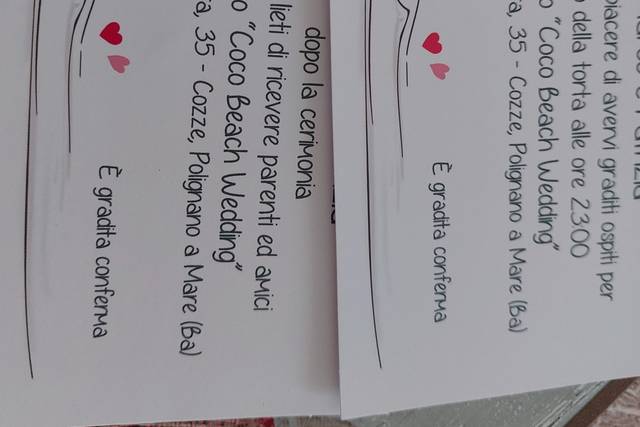 dopo la cerimonia
lieti di ricevere parenti ed amici
o "Coco Beach Wedding"
a, 35 - Cozze, Polignano a Mare (Ba)
È gradita conferma
piacere di avervi graditi ospiti per
della torta alle ore 23.00
o "Coco Beach Wedding"
a, 35 - Cozze, Polignano a Mare (Ba)
È gradita conferma